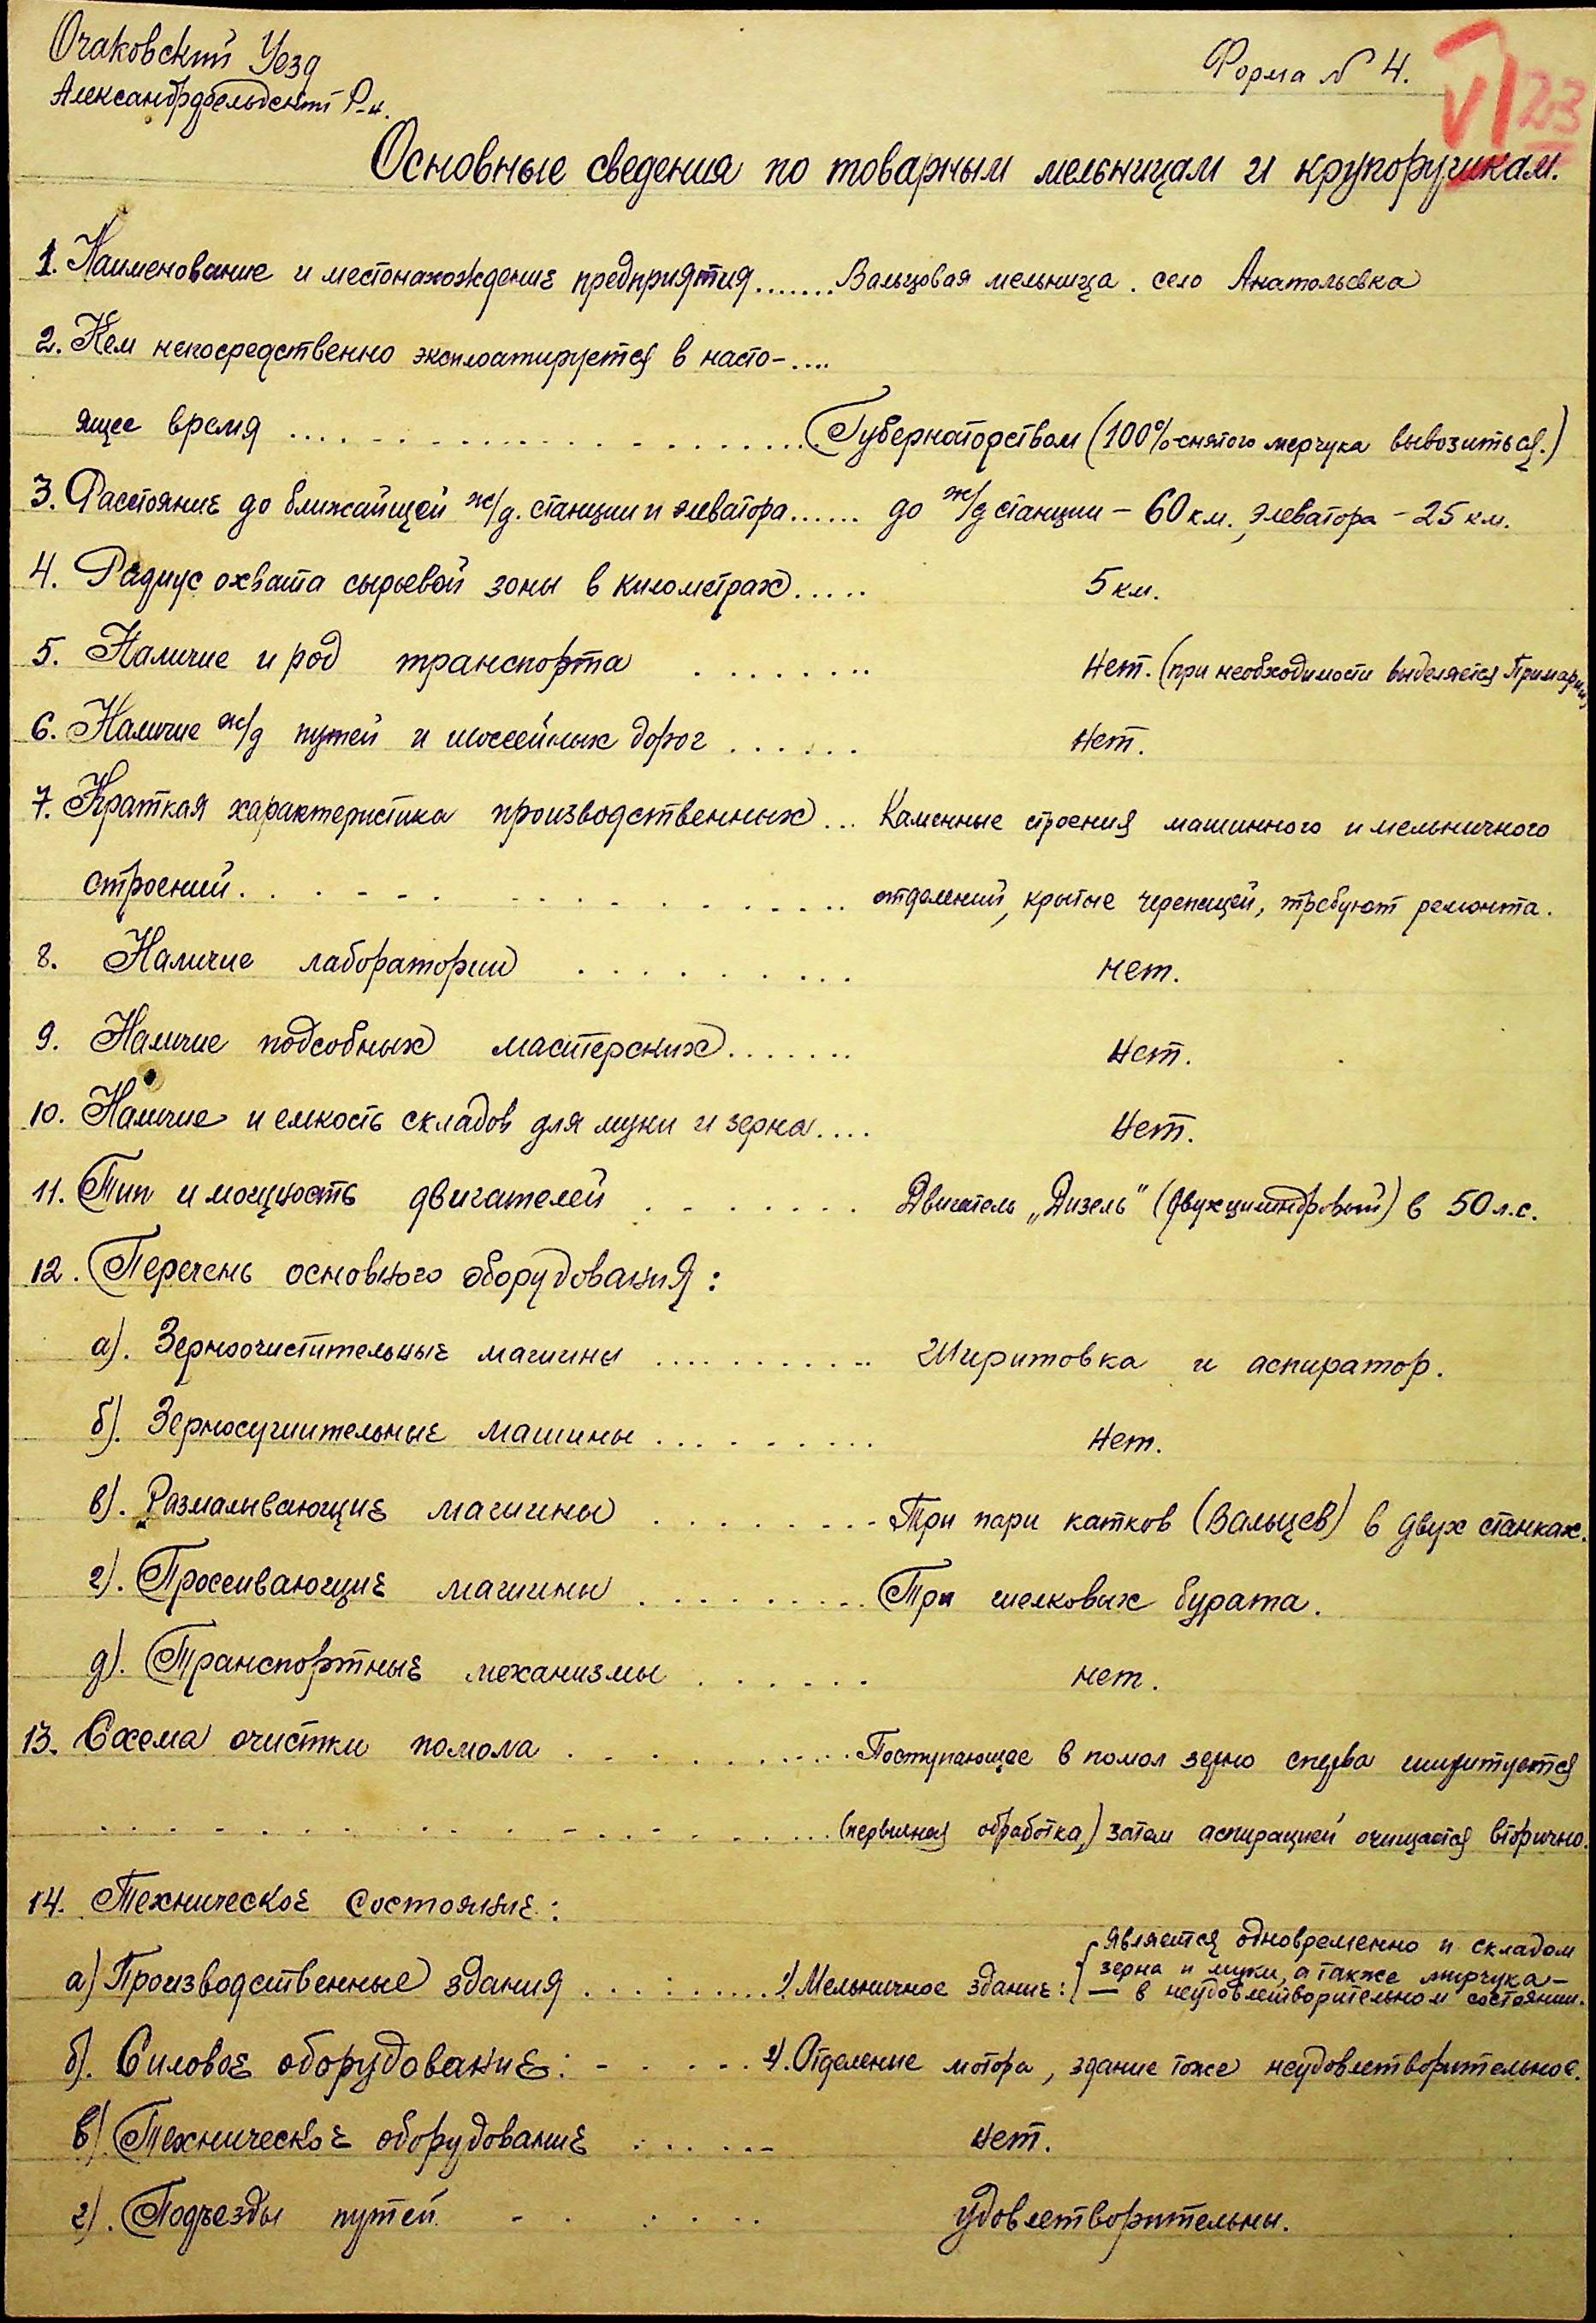 Очаковский Уезд
Александрфельдский Р-н.
Форма № 4.
VI 23
Основные сведения по товарным мельницам и крупорушкам.
1. Наименование и местонахождение предприятия ....... Вальцовая мельница. село Анатольевка
2. Кем непосредственно эксплоатируется в насто-....
ящее время .... Губернаторством (100% снятого мерчука вывозиться.)
3. Расстояние до ближайщей ж/д. станции и элеватора ...... до ж/д станции – 60 км., элеватора – 25 км.
4. Радиус охвата сырьевой зоны в километрах ..... 5 км.
5. Наличие и род транспорта ........ Нет. (при необходимости выделяется Примарии)
6. Наличие ж/д путей и шоссейных дорог ...... Нет.
7. Краткая характеристика производственных ... Каменные строения машинного и мельничного
строений. ........ отделений, крытые черепицей, требуют ремонта.
8. Наличие лаборатории ......... нет.
9. Наличие подсобных мастерских ....... Нет.
10. Наличие и емкость складов для муки и зерна .... Нет.
11. Тип и мощность двигателей ....... Двигатель „Дизель" (двухцилиндровый) в 50 л.с.
12. Перечень основного оборудования:
а). Зерноочистительные машины .......... Шеритовка и аспиратор.
б). Зерносушительные машины ......... Нет.
в). Размалывающие машины ........ Три пари катков (Вальцев) в двух станках.
г). Просеивающие машины ......... Три шелковых бурата.
д). Транспортные механизмы ...... нет.
13. Схема очистки помола .......... Поступающее в помол зерно сперва шеритуется
.................. (первичная обработка,) затем аспирацией очищается вторично.
14. Техническое состояние:
а) Производственные здания ......... 1) Мельничное здание: { Является одновременно и складом
зерна и муки, а также мирчука –
— в неудовлетворительном состоянии.
б). Силовое оборудование: ..... 2). Отделение мотора, здание тоже неудовлетворительное.
в) Техническое оборудование ...... Нет.
г). Подъезды путей ...... удовлетворительны.